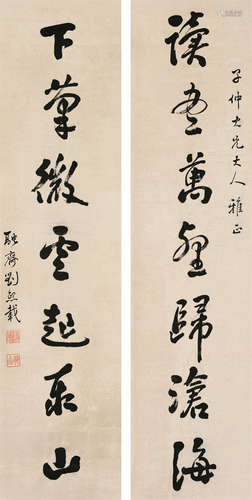 讀書萬壑歸滄海
子仲大兄大人雅正
下筆微雲起泰山
融齋劉熙載